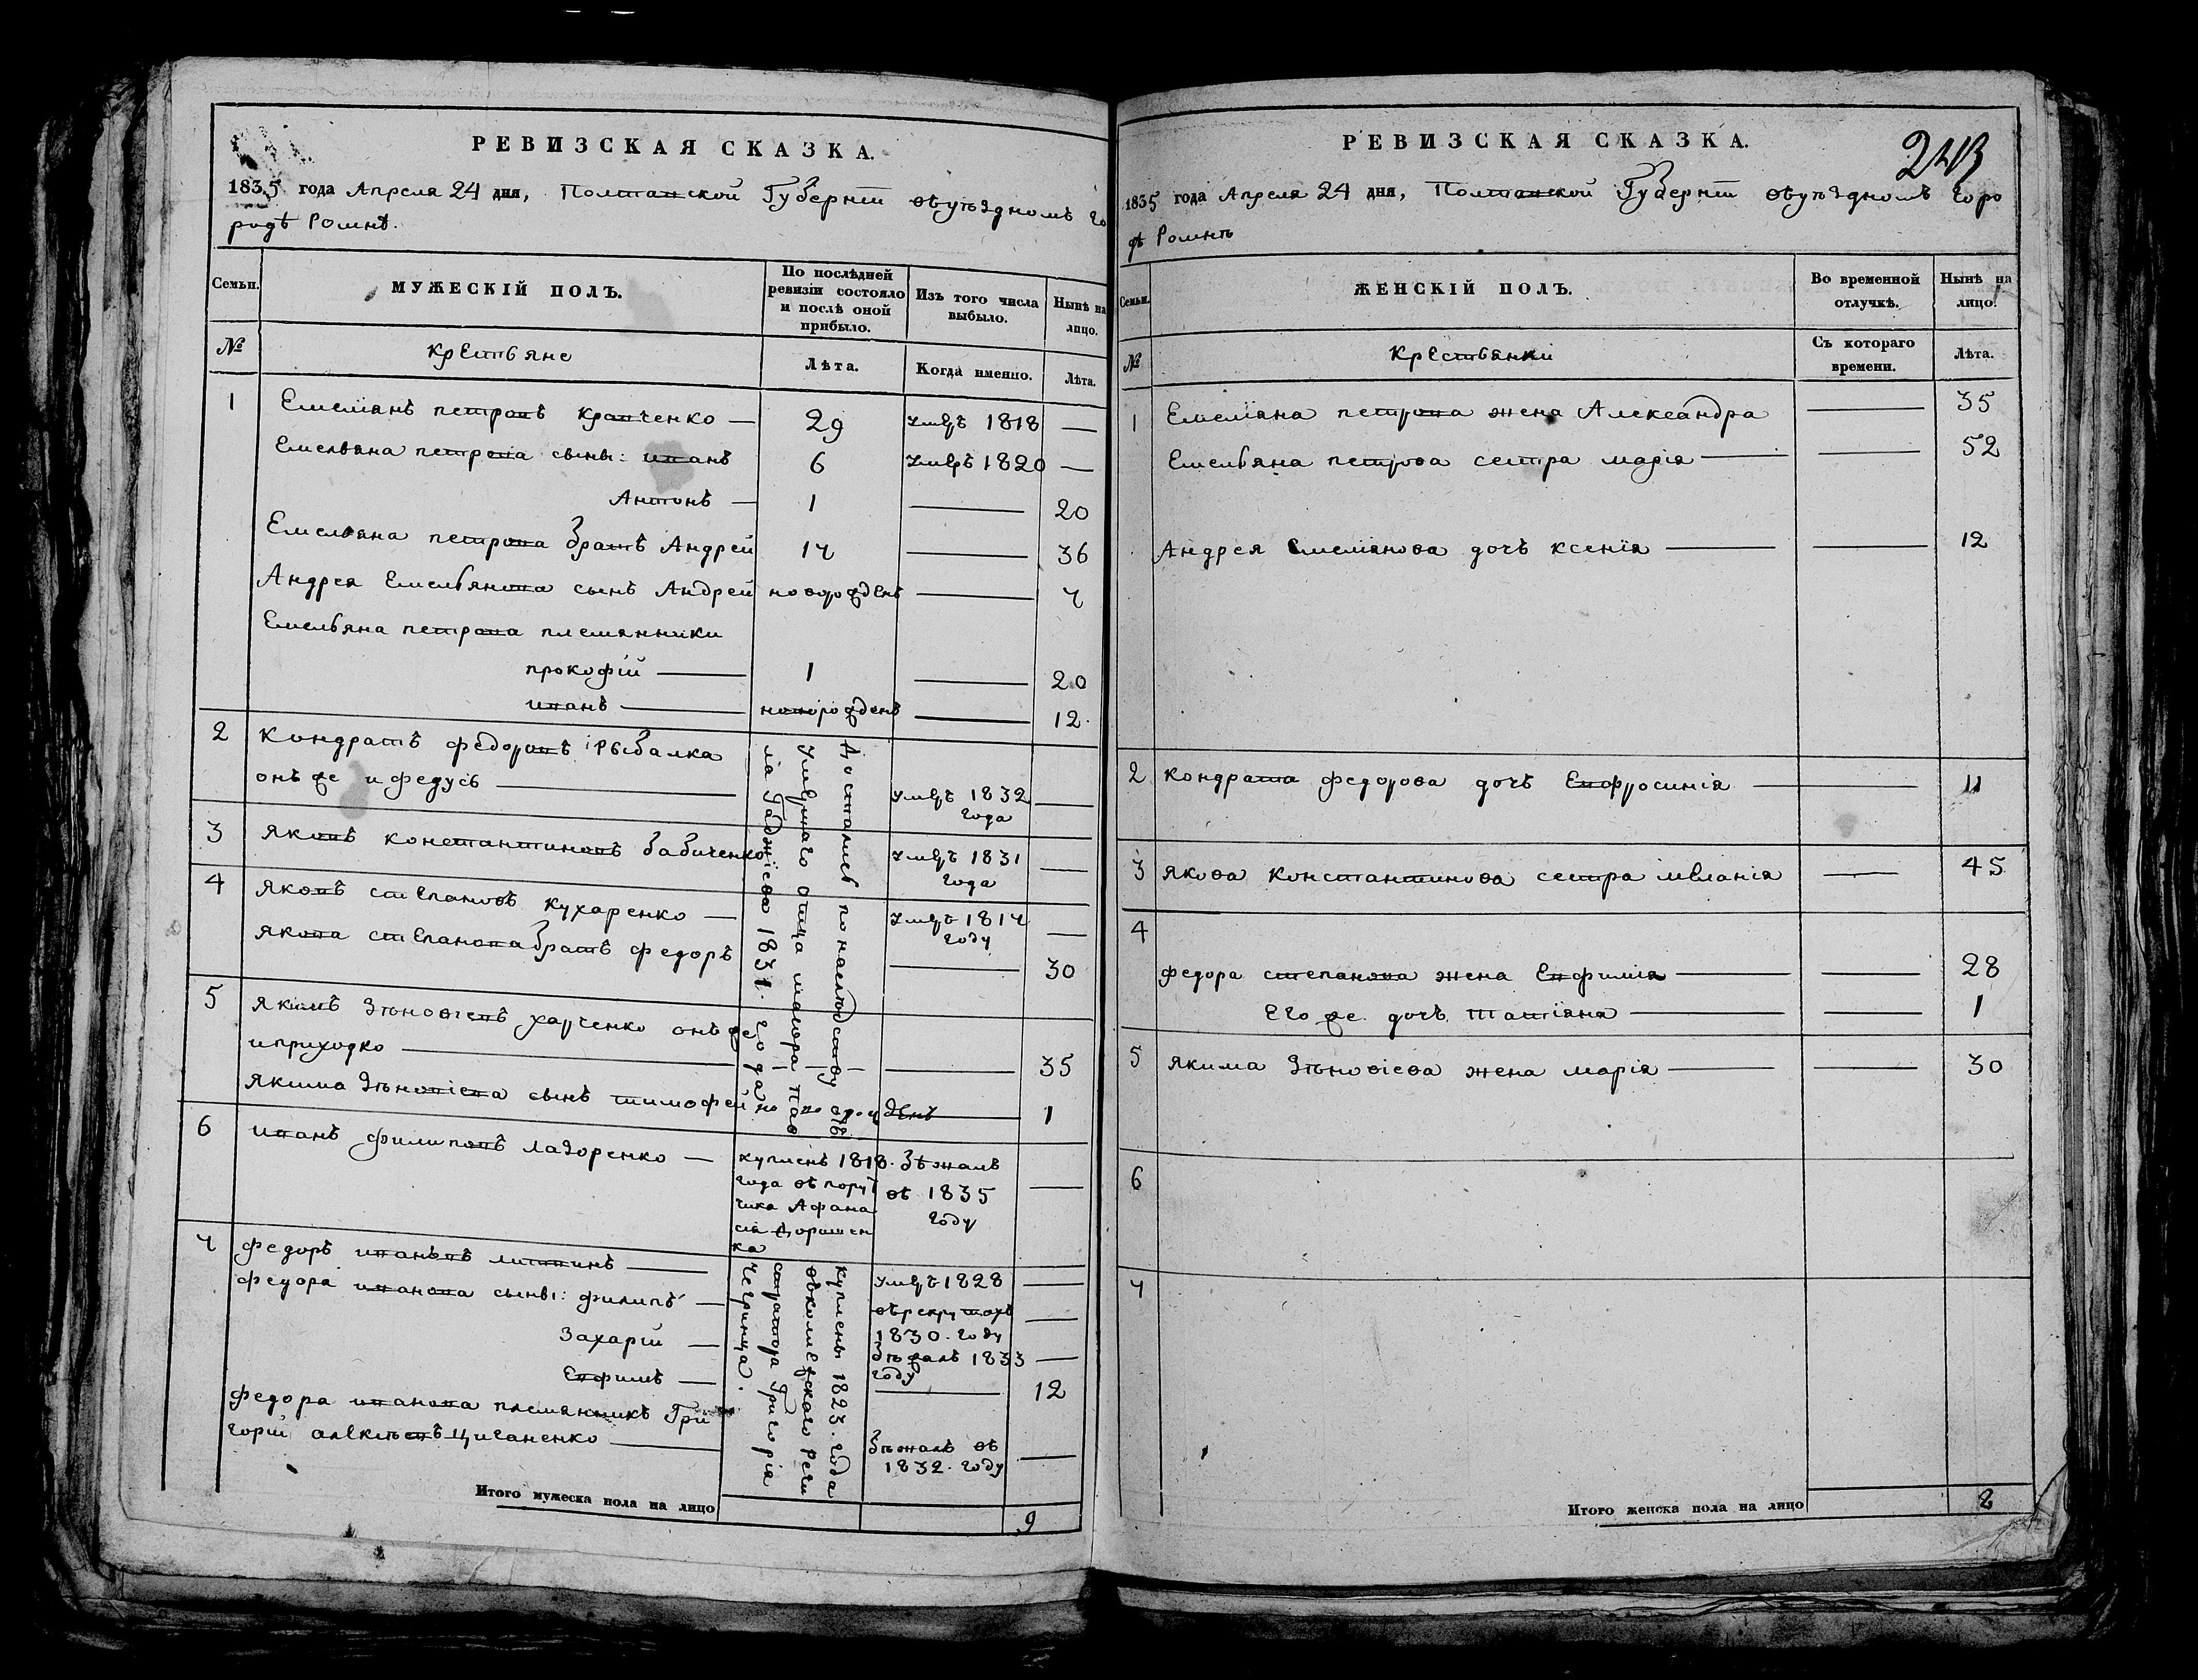 РЕВИЗСКАЯ СКАЗКА.
1835 года Апреля 24 дня, Полтавской Губернiи въуѣздномъ го
родѣ Ромнѣ.
Семьи.
МУЖЕСКІЙ ПОЛЪ.
По послѣдней ревизіи состояло и послѣ оной прибыло.
Изъ того числа выбыло.
Нынѣ на лицо.
№
крестьяне
Лѣта.
Когда именно.
Лѣта.
1 Емелiянъ петровъ кравченко — 29 умеръ 1818 —
Емельяна петрова сыны: иванъ 6 умеръ 1820 —
Антонъ — 1 — 20
Емельяна петрова братъ Андрей 14 — 36
Андрея Емельянова сынъ Андрей новорожденъ — 4
Емельяна петрова племянники
прокофiй — 1 — 20
иванъ — новорожденъ — 12.
2 кондратъ федоровъ рыбалка
онъ же и федусь — умеръ 1832 года —
3 яковъ константиновъ бабиченко умеръ 1831 года —
4 яковъ степановъ кухаренко — умеръ 1814 году —
якова степанова братъ федоръ — 30
5 якимъ Зѣновiевъ харченко онъ же
и приходко — — 35
якима Зѣновiева сынъ тимофей новорожденъ — 1
Достались по наслѣдству отъ
умершаго отца маiора Пав
ла Гаджiева 1831. года
6 иванъ филиповъ лазоренко — купленъ 1818. года въ пору чика Афана сiя Дорошен ка
бѣжалъ въ 1835 году —
4 федоръ ивановъ литвинъ — умеръ 1828 —
федора иванова сыны: филипъ — въ рекрутахъ 1830. году —
Захарiй — бѣжалъ 1833 году —
Евфимъ — — 12
федора иванова племянникъ Гри
горiй алексѣевъ циганенко — бѣжалъ въ 1832. году —
куплены 1823. года
въколлежского Реги
стратора Григорiя
Чегринца.
Итого мужеска пола на лицо 9
РЕВИЗСКАЯ СКАЗКА.
243
1835 года Апреля 24 дня, Полтавской Губернiи въуѣздномъ горо
дѣ Ромнѣ
Семьи.
ЖЕНСКІЙ ПОЛЪ.
Во временной отлучкѣ.
Нынѣ на лицо.
№
крестьянки
Съ котораго времени.
Лѣта.
1 Емелiяна петрова жена Александра — 35
Емельяна петрова сестра марiя — 52
Андрея Емелiянова дочъ ксенiя — 12
2 кондрата федорова дочъ Евфросинiя — 11
3 якова константинова сестра мвланiя — 45
4
федора степанова жена Евфимiя — 28
Его же. дочъ татiяна — 1
5 якима Зѣновiева жена марiя — 30
6
4
Итого женска пола на лицо 8